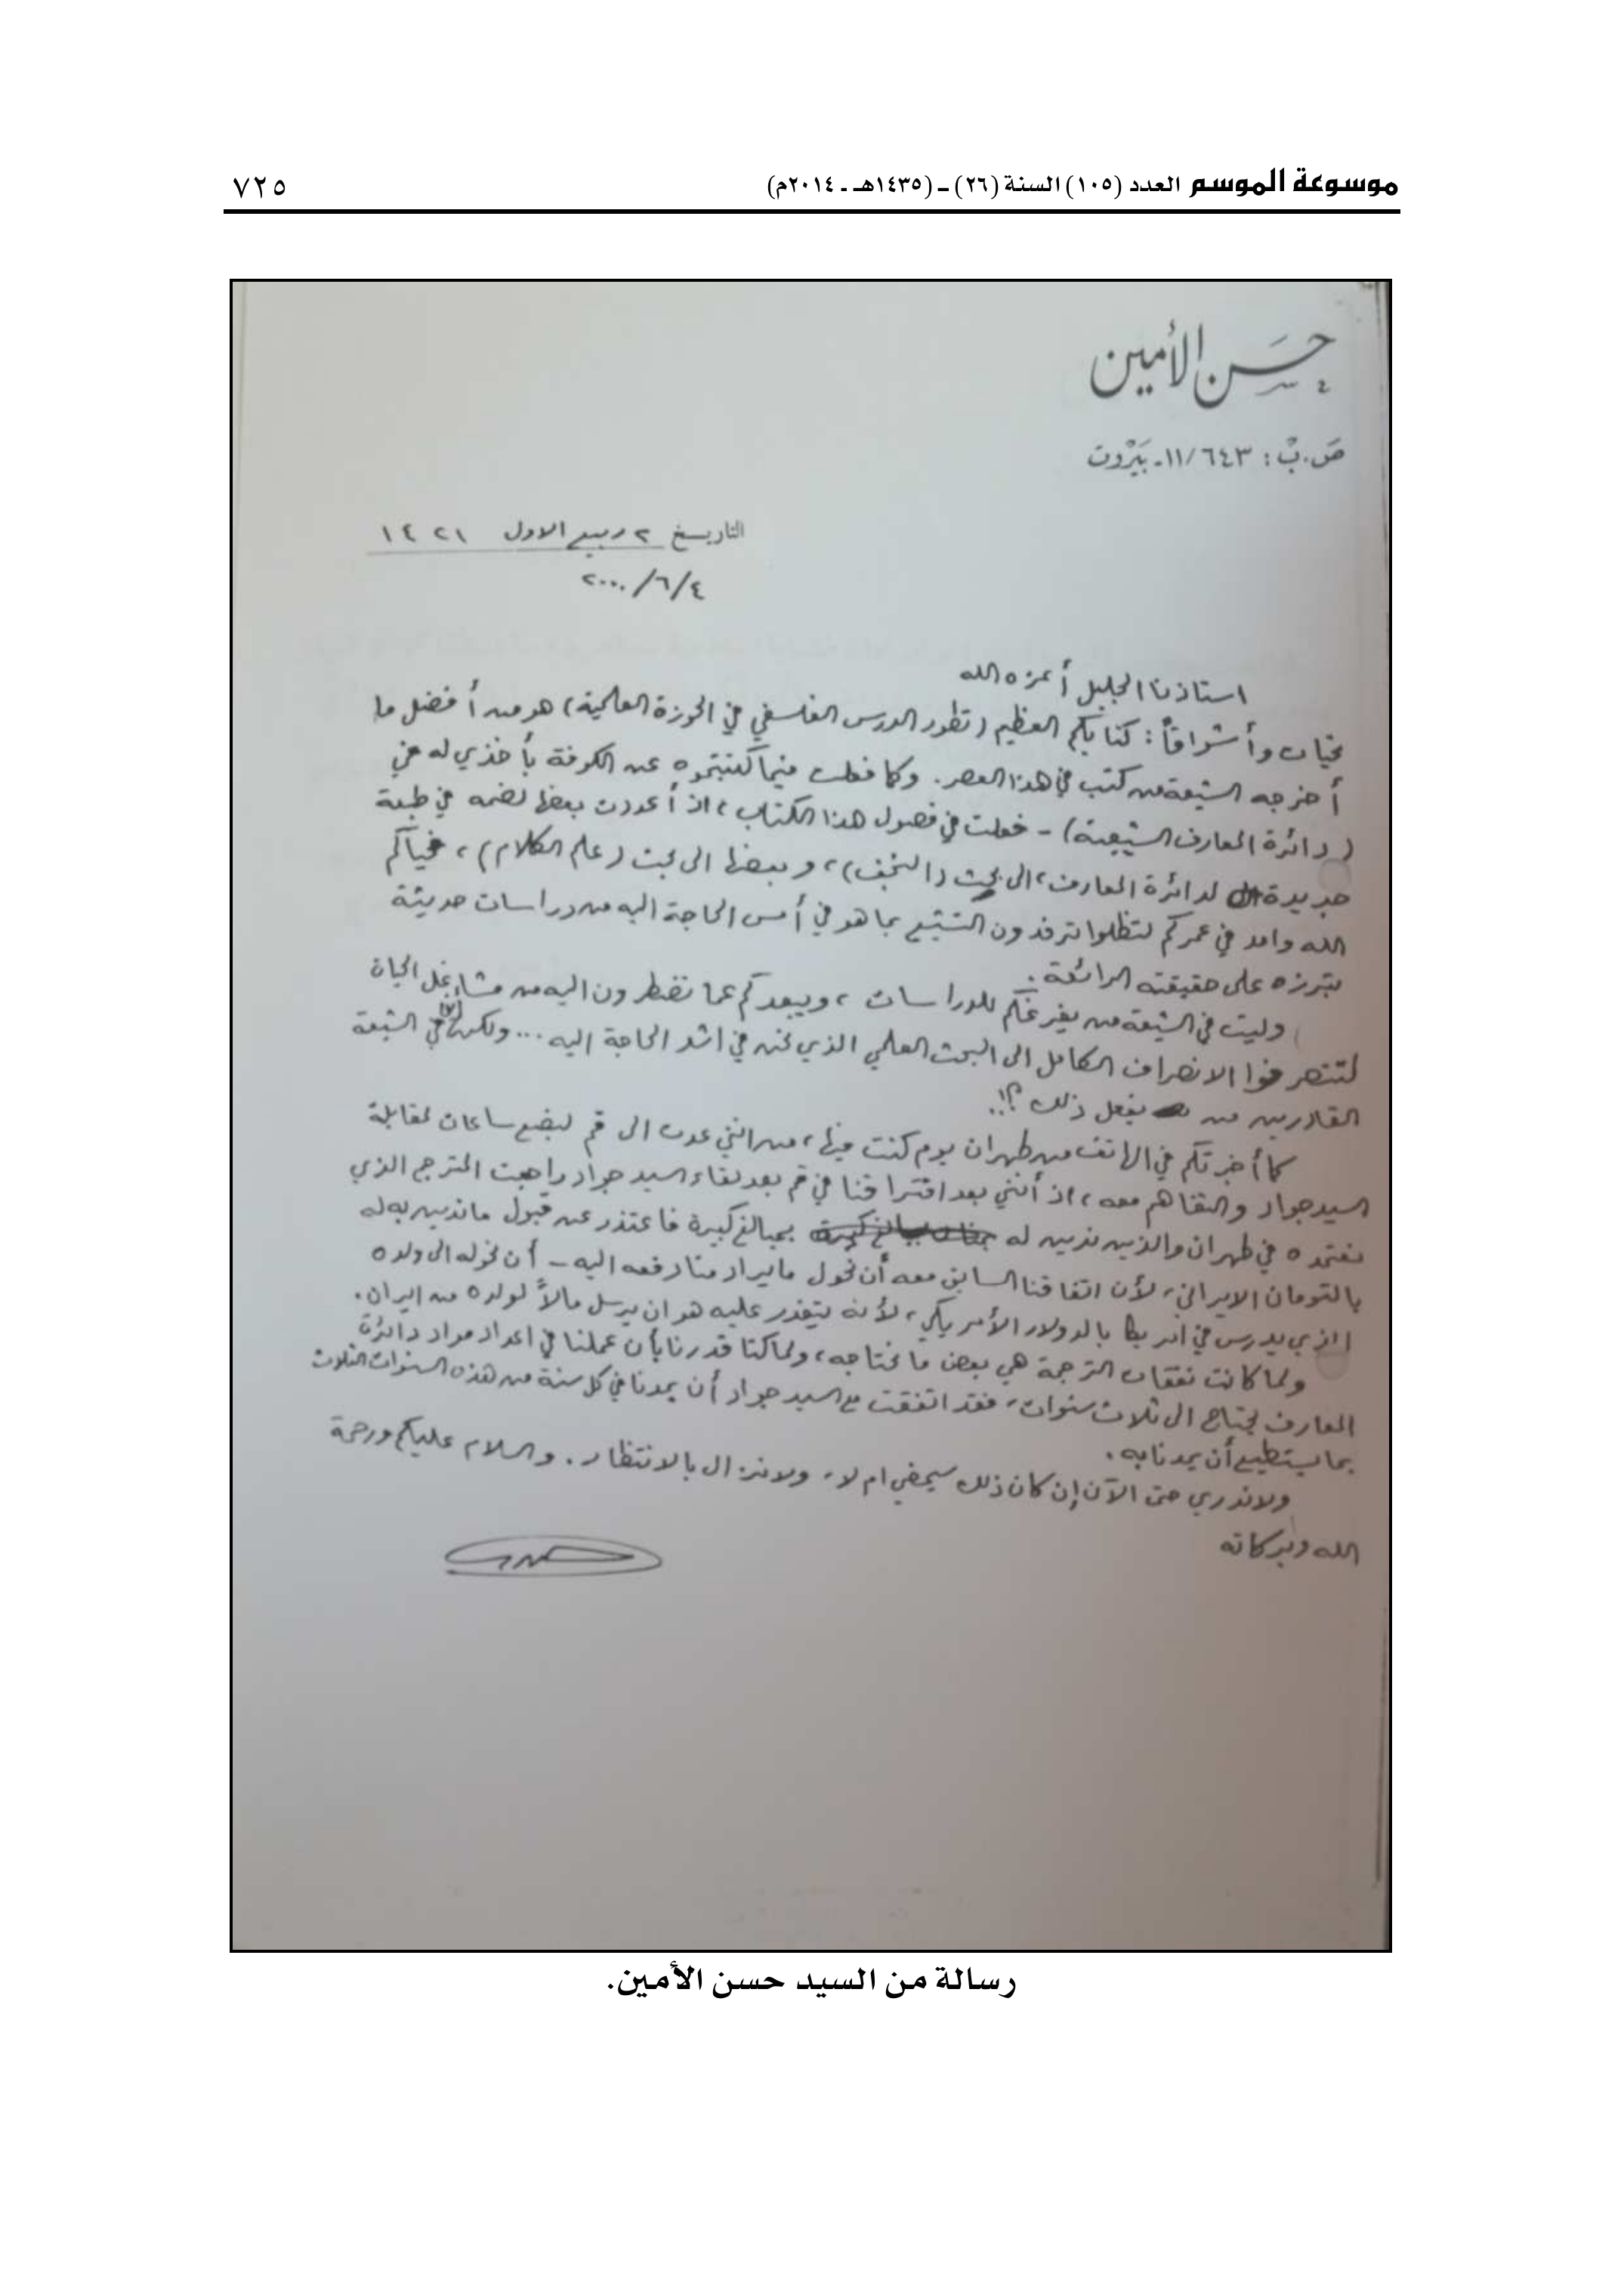 موسوعة الموسم العدد (١٠٥) السنة (٢٦) ـ (١٤٣٥هـ ـ ٢٠١٤م)
٧٢٥
حسن الأمين
ص.ب: ١١/٦٤٣ـ بيروت
التاريخ ٢ ربيع الاول ١٤٢١
٢٠٠٠/٦/٤
استاذنا الجليل أعزه الله
تحيات وأشواقاً: كتابكم العظيم (تطور الدرس الفلسفي في الحوزة العلمية) هو من أفضل ما
أخرجه الشيعة من كتب في هذا العصر. وكما فعلت فيما كتبتموه عن الكوفة بأخذي له في
(دائرة المعارف الشيعية) - فعلت في فصول هذا الكتاب، اذ أعددت بعضها لضمه في طبعة
جديدة لدائرة المعارف، الى بحث (النجف)، وبعضها الى بحث (علم الكلام)، فحياكم
الله وامد في عمركم لتظلوا ترفدون التشيع بما هو في أمس الحاجة اليه من دراسات حديثة
تبرزه على حقيقته الرائعة.
وليت في الشيعة من يفرغكم للدراسات، ويبعدكم عما تضطرون اليه من مشاغل الحياة
لتنصرفوا الانصراف الكامل الى البحث العلمي الذي نحن في اشد الحاجة اليه ... ولكن في الشيعة
القادرين من يفعل ذلك؟!..
كما أخبرتكم في الهاتف من طهران يوم كنت فيها، من انني عدت الى قم لبضع ساعات لمقابلة
السيد جواد والتفاهم معه، اذ أنني بعد افتراقنا في قم بعد لقاء السيد جواد راجعت المترجم الذي
نعتمده في طهران والذين ندين له بمبالغ كبيرة فاعتذر عن قبول ما ندين به له
بالتومان الايراني، لأن اتفاقنا السابق معه أن نحول ما يراد منا دفعه اليه - أن نحوله الى ولده
الذي يدرس في امريكا بالدولار الأمريكي، لأنه يتعذر عليه هو ان يرسل مالاً لولده من ايران.
ولما كانت نفقات الترجمة هي بعض ما نحتاجه، ولما كنا قدرنا بأن عملنا في اعداد مواد دائرة
المعارف يحتاج الى ثلاث سنوات، فقد اتفقت مع السيد جواد أن يمدنا في كل سنة من هذه السنوات الثلاث
بما يستطيع أن يمدنا به.
ولا ندري حتى الآن إن كان ذلك سيمضي ام لا، ولا نزال بالانتظار. والسلام عليكم ورحمة
الله وبركاته
رسالة من السيد حسن الأمين.